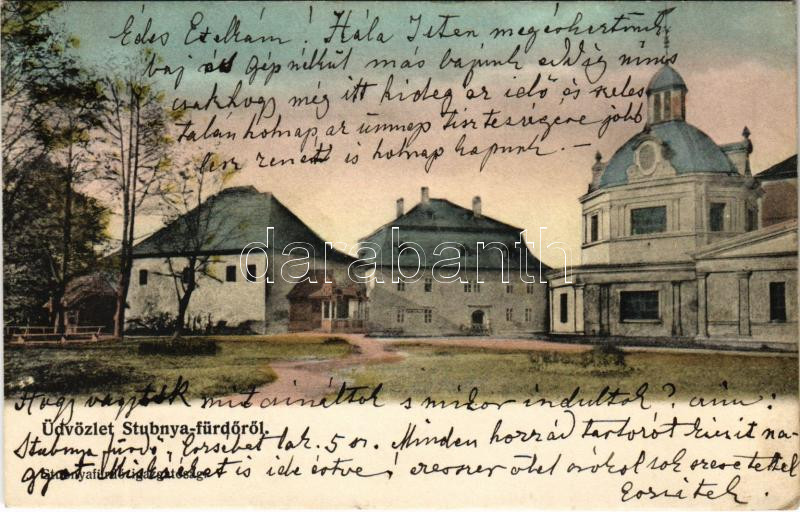 Édes Etelkám! Hála Isten megérkeztünk
baj és gép nélkül más bajunk eddig nincs
csakhogy még itt hideg az idő és szeles
talán holnap az ünnep tisztességére jobb
lesz zenét is holnap kapunk. —
darabanth
Hogy vagytok mit csináltok s mikor indultok? czim:
Üdvözlet Stubnya-fürdőről.
Stubnya fürdő, Erzsébet lak. 5 sz. Minden hozzád tartozót kicsit na-
gyot is ide értve, ezerszer ölel csókol sok szeretettel